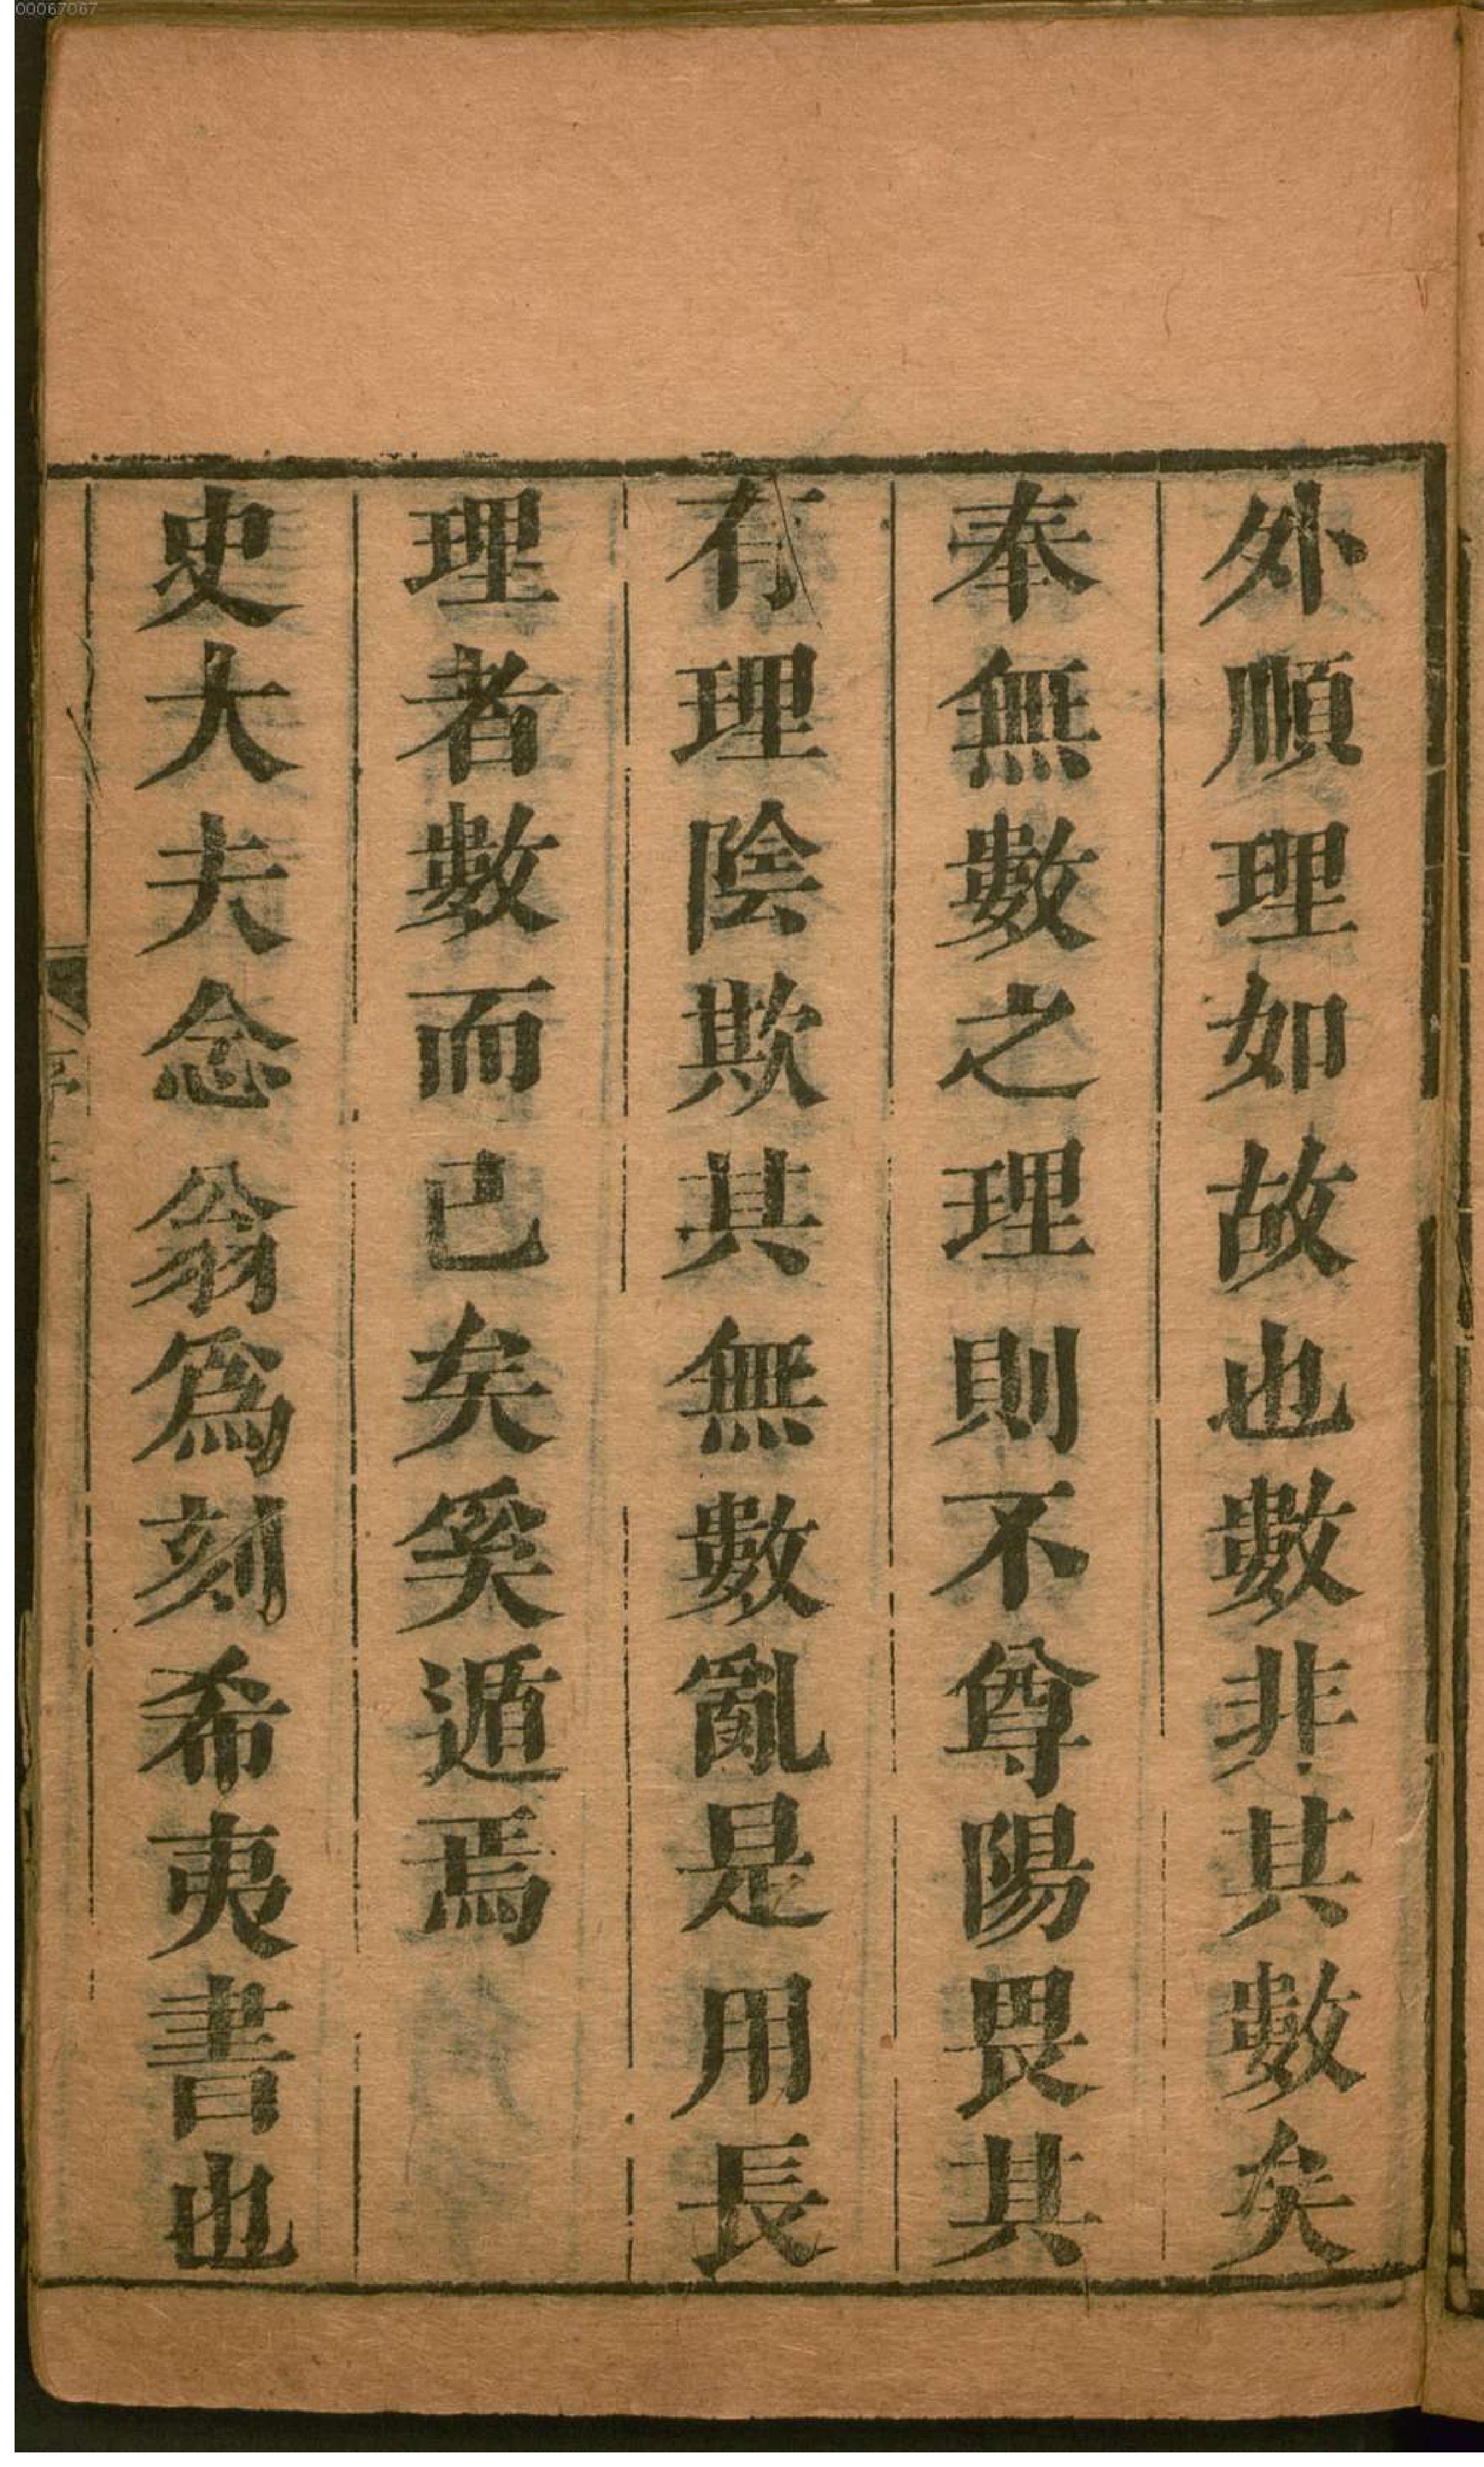 外順理如故也數非其數矣
奉無數之理則不尊陽畏其
有理陰欺其無數亂是用長
理者數而已矣奚遁焉
史大夫念翁爲刻希夷書也
00067067